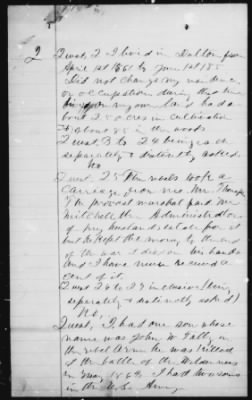 2
Quest, 2 I lived in Dalton from
April 1st 1861 to June 1st 186
Did not change my residence
or occupation during that time
I was on my own land had a
bout 250 acres in cultivation
about 95 in the woods
Quest 3 to 24 being each
separately & distinctly asked
No
Quest. 25 The rebels took a
Carriage from me. Mr
The provost marshal paid Mr
Mitchell the Administrator
of my husbands estate for it
but he kept the money by the end
of the war it died on his hands
and I have never received a
cent of it
Quest 26 to 29 inclusive (being
separately & distinctly asked)
No,
Quest, I had one son whose
name was John W
the rebel Army he was killed
at the battle of the Wilderness
in May 1864 I had two sons
in the U.S. Army